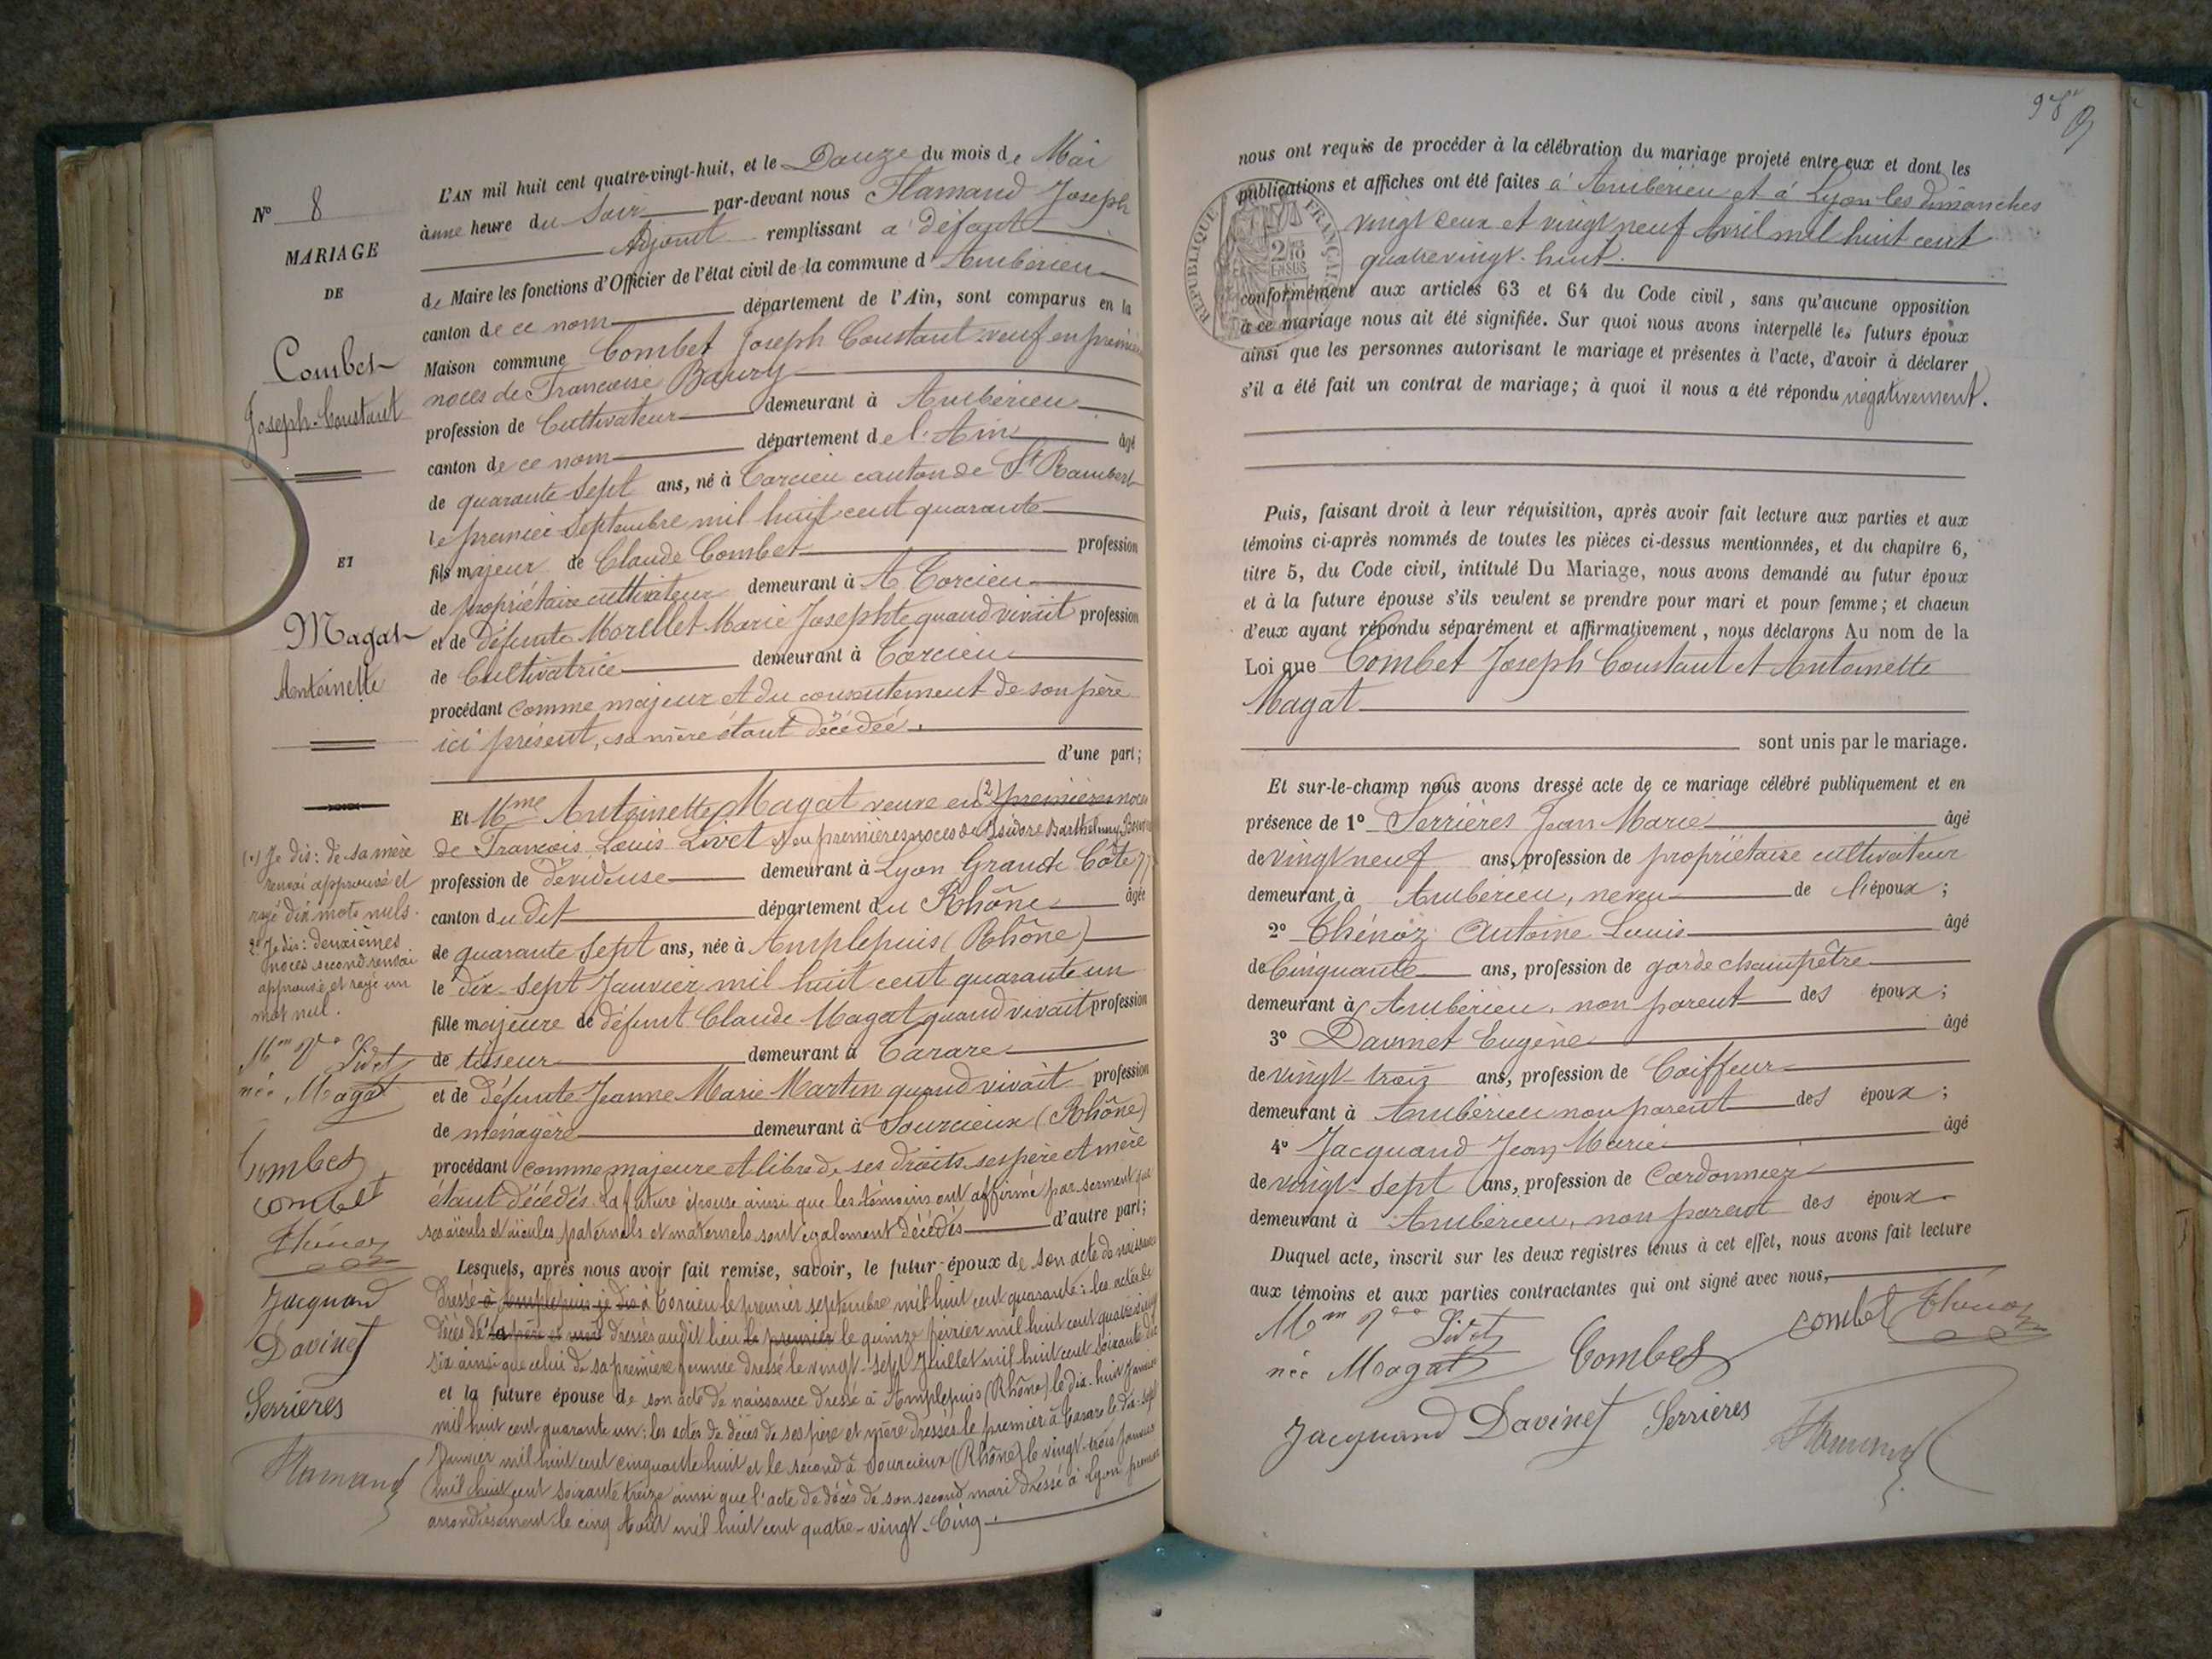 N° 8
MARIAGE
DE
Combet
Joseph-Constant
ET
Magat
Antoinette
(1) Je dis: de sa mère
renvoi approuvé et
rayé dix mots nuls.
2° Je dis: deuxièmes
noces second renvoi
approuvé et rayé un
mot nul.
Mme Vve Livet
née Magat
Combet
combet
Thénoz
Jacquand
Davinet
Serrières
Flamand
L'AN mil huit cent quatre-vingt-huit, et le Douze du mois de Mai
à une heure du Soir par-devant nous Flamand Joseph
Adjoint remplissant à défaut
de Maire les fonctions d'Officier de l'état civil de la commune d'Ambérieu
canton de ce nom département de l'Ain, sont comparus en la
Maison commune Combet Joseph Constant veuf en premières
noces de Françoise Baury
profession de Cultivateur demeurant à Ambérieu
canton de ce nom département de l'Ain âgé
de quarante sept ans, né à Torcieu canton de St Rambert
le premier Septembre mil huit cent quarante
fils majeur de Claude Combet profession
de propriétaire cultivateur demeurant à A Torcieu
et de défunte Morellet Marie Josephte quand vivait profession
de Cultivatrice demeurant à Torcieu
procédant comme majeur et du consentement de son père
ici présent, sa mère étant décédée.
d'une part;
Et Mme Antoinette Magat veuve en (2) premières noces
de François Louis Livet et en premières noces de Isidore Barthelmy
profession de dévideuse demeurant à Lyon Grande Côte 77
canton du dit département du Rhône âgée
de quarante Sept ans, née à Amplepuis (Rhône)
le dix-sept Janvier mil huit cent quarante un
fille majeure de défunt Claude Magat quand vivait profession
de tisseur demeurant à Tarare
et de défunte Jeanne Marie Martin quand vivait profession
de ménagère demeurant à Sourcieux (Rhône)
procédant comme majeure et libre de ses droits ses père et mère
étant décédés. La future épouse ainsi que les témoins ont affirmé par serment que
ses aïeuls et aïeules paternels et maternels sont également décédés d'autre part;
Lesquels, après nous avoir fait remise, savoir, le futur époux de son acte de naissance
dressé à Amplepuis je dis à Torcieu le premier septembre mil huit cent quarante: les actes de
décès de sa père et mère dressés audit lieu le premier le quinze février mil huit cent quatre vingt
six ainsi que celui de sa première femme dressé le vingt-sept Juillet mil huit cent soixante dix
et la future épouse de son acte de naissance dressé à Amplepuis (Rhône) le dix-huit Janvier
mil huit cent quarante un: les actes de décès de ses père et mère dressés le premier à Tarare le dix-sept
Janvier mil huit cent cinquante huit et le second à Sourcieux (Rhône) le vingt-trois janvier
mil huit cent soixante treize ainsi que l'acte de décès de son second mari dressé à Lyon premier
arrondissement le cinq Août mil huit cent quatre-vingt-Cinq
nous ont requis de procéder à la célébration du mariage projeté entre eux et dont les
publications et affiches ont été faites à Ambérieu et à Lyon les dimanches
vingt deux et vingt neuf Avril mil huit cent
quatrevingt-huit.
RÉPUBLIQUE FRANÇAISE
2/10 EN SUS
conformément aux articles 63 et 64 du Code civil, sans qu'aucune opposition
à ce mariage nous ait été signifiée. Sur quoi nous avons interpellé les futurs époux
ainsi que les personnes autorisant le mariage et présentes à l'acte, d'avoir à déclarer
s'il a été fait un contrat de mariage; à quoi il nous a été répondu négativement.
Puis, faisant droit à leur réquisition, après avoir fait lecture aux parties et aux
témoins ci-après nommés de toutes les pièces ci-dessus mentionnées, et du chapitre 6,
titre 5, du Code civil, intitulé Du Mariage, nous avons demandé au futur époux
et à la future épouse s'ils veulent se prendre pour mari et pour femme; et chacun
d'eux ayant répondu séparément et affirmativement, nous déclarons Au nom de la
Loi que Combet Joseph Constant et Antoinette
Magat
sont unis par le mariage.
Et sur-le-champ nous avons dressé acte de ce mariage célébré publiquement et en
présence de 1° Serrières Jean Marie âgé
de vingt neuf ans, profession de propriétaire cultivateur
demeurant à Ambérieu, neveu de l'époux;
2° Thénoz Antoine Louis âgé
de Cinquante ans, profession de garde champêtre
demeurant à Ambérieu, non parent des époux;
3° Davinet Eugène âgé
de vingt-trois ans, profession de Coiffeur
demeurant à Ambérieu non parent des époux;
4° Jacquand Jean Marie âgé
de vingt-sept ans, profession de Cordonnier
demeurant à Ambérieu, non parent des époux
Duquel acte, inscrit sur les deux registres tenus à cet effet, nous avons fait lecture
aux témoins et aux parties contractantes qui ont signé avec nous,
Mme Vve Livet
née Magat Combet combet Thénoz
Jacquand Davinet Serrières Flamand